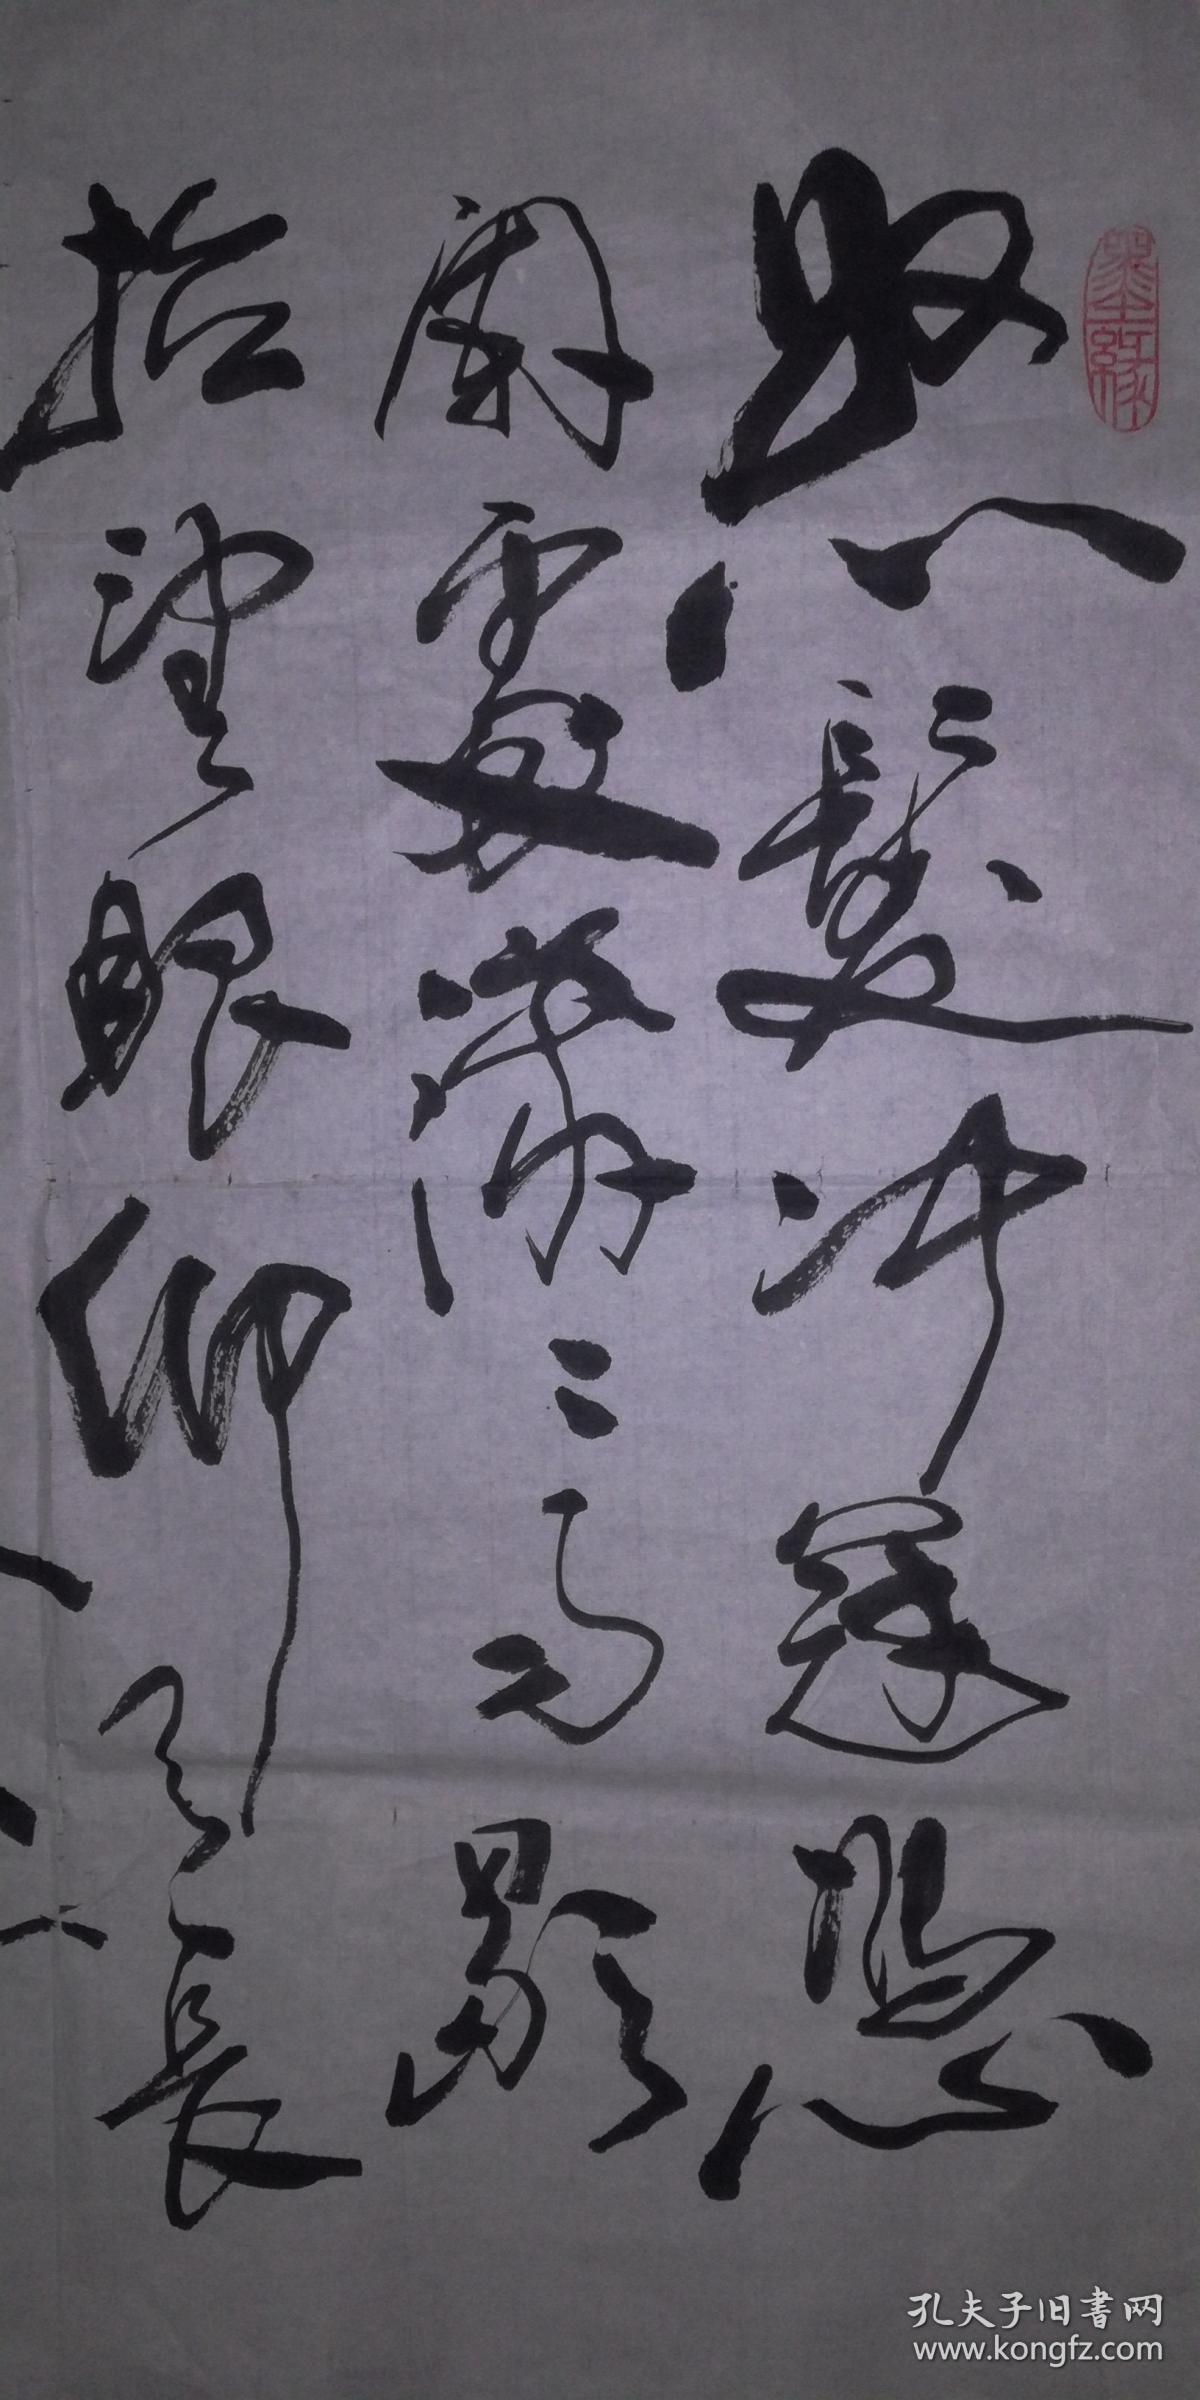 怒髮冲冠憑
闌處潇潇雨歇
抬望眼仰天長
孔夫子旧書网
www.kongfz.com